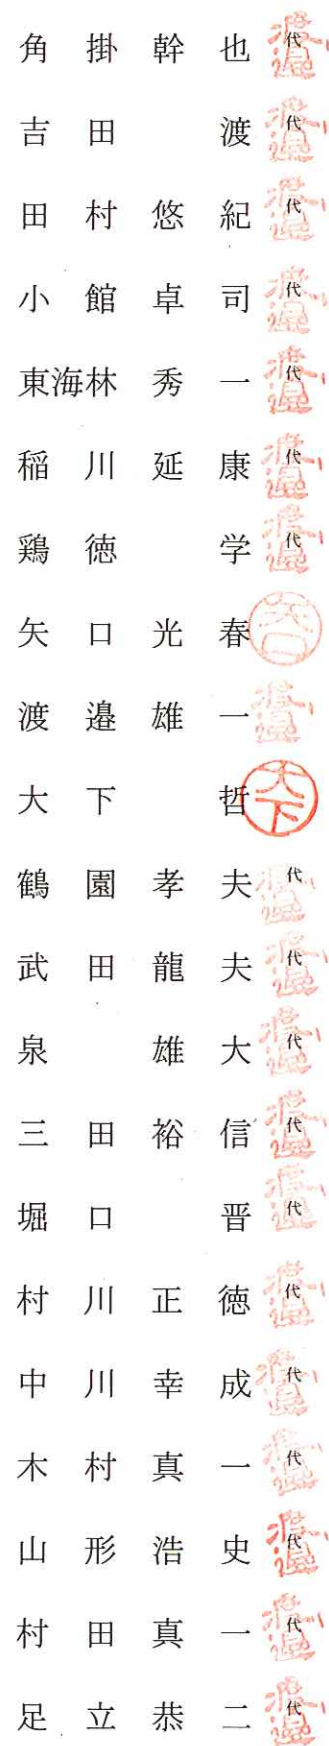 角掛幹也 代 渡邉
吉田渡 代 渡邉
田村悠紀 代 渡邉
小館卓司 代 渡邉
東海林秀一 代 渡邉
稲川延康 代 渡邉
鶏徳学 代 渡邉
矢口光春 矢口
渡邉雄一 渡邉
大下哲 大下
鶴園孝夫 代 渡邉
武田龍夫 代 渡邉
泉雄大 代 渡邉
三田裕信 代 渡邉
堀口晋 代 渡邉
村川正徳 代 渡邉
中川幸成 代 渡邉
木村真一 代 渡邉
山形浩史 代 渡邉
村田真一 代 渡邉
足立恭二 代 渡邉